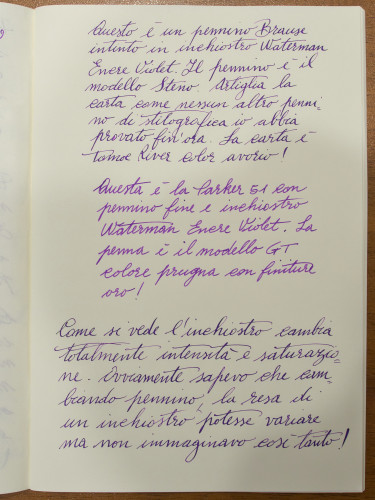 Questo è un pennino Brause
intinto in inchiostro Waterman
Encre Violet. Il pennino è il
modello Steno. Artiglia la
carta come nessun altro penni-
no di stilografica io abbia
provato fin'ora. La carta è
Tomoe River color avorio!
Questa è la Parker 51 con
pennino fine e inchiostro
Waterman Encre Violet. La
penna è il modello GT
colore prugna con finiture
oro!
Come si vede l'inchiostro cambia
totalmente intensità e saturazio-
ne. Ovviamente sapevo che cam-
biando pennino, la resa di
un inchiostro potesse variare
ma non immaginavo così tanto!